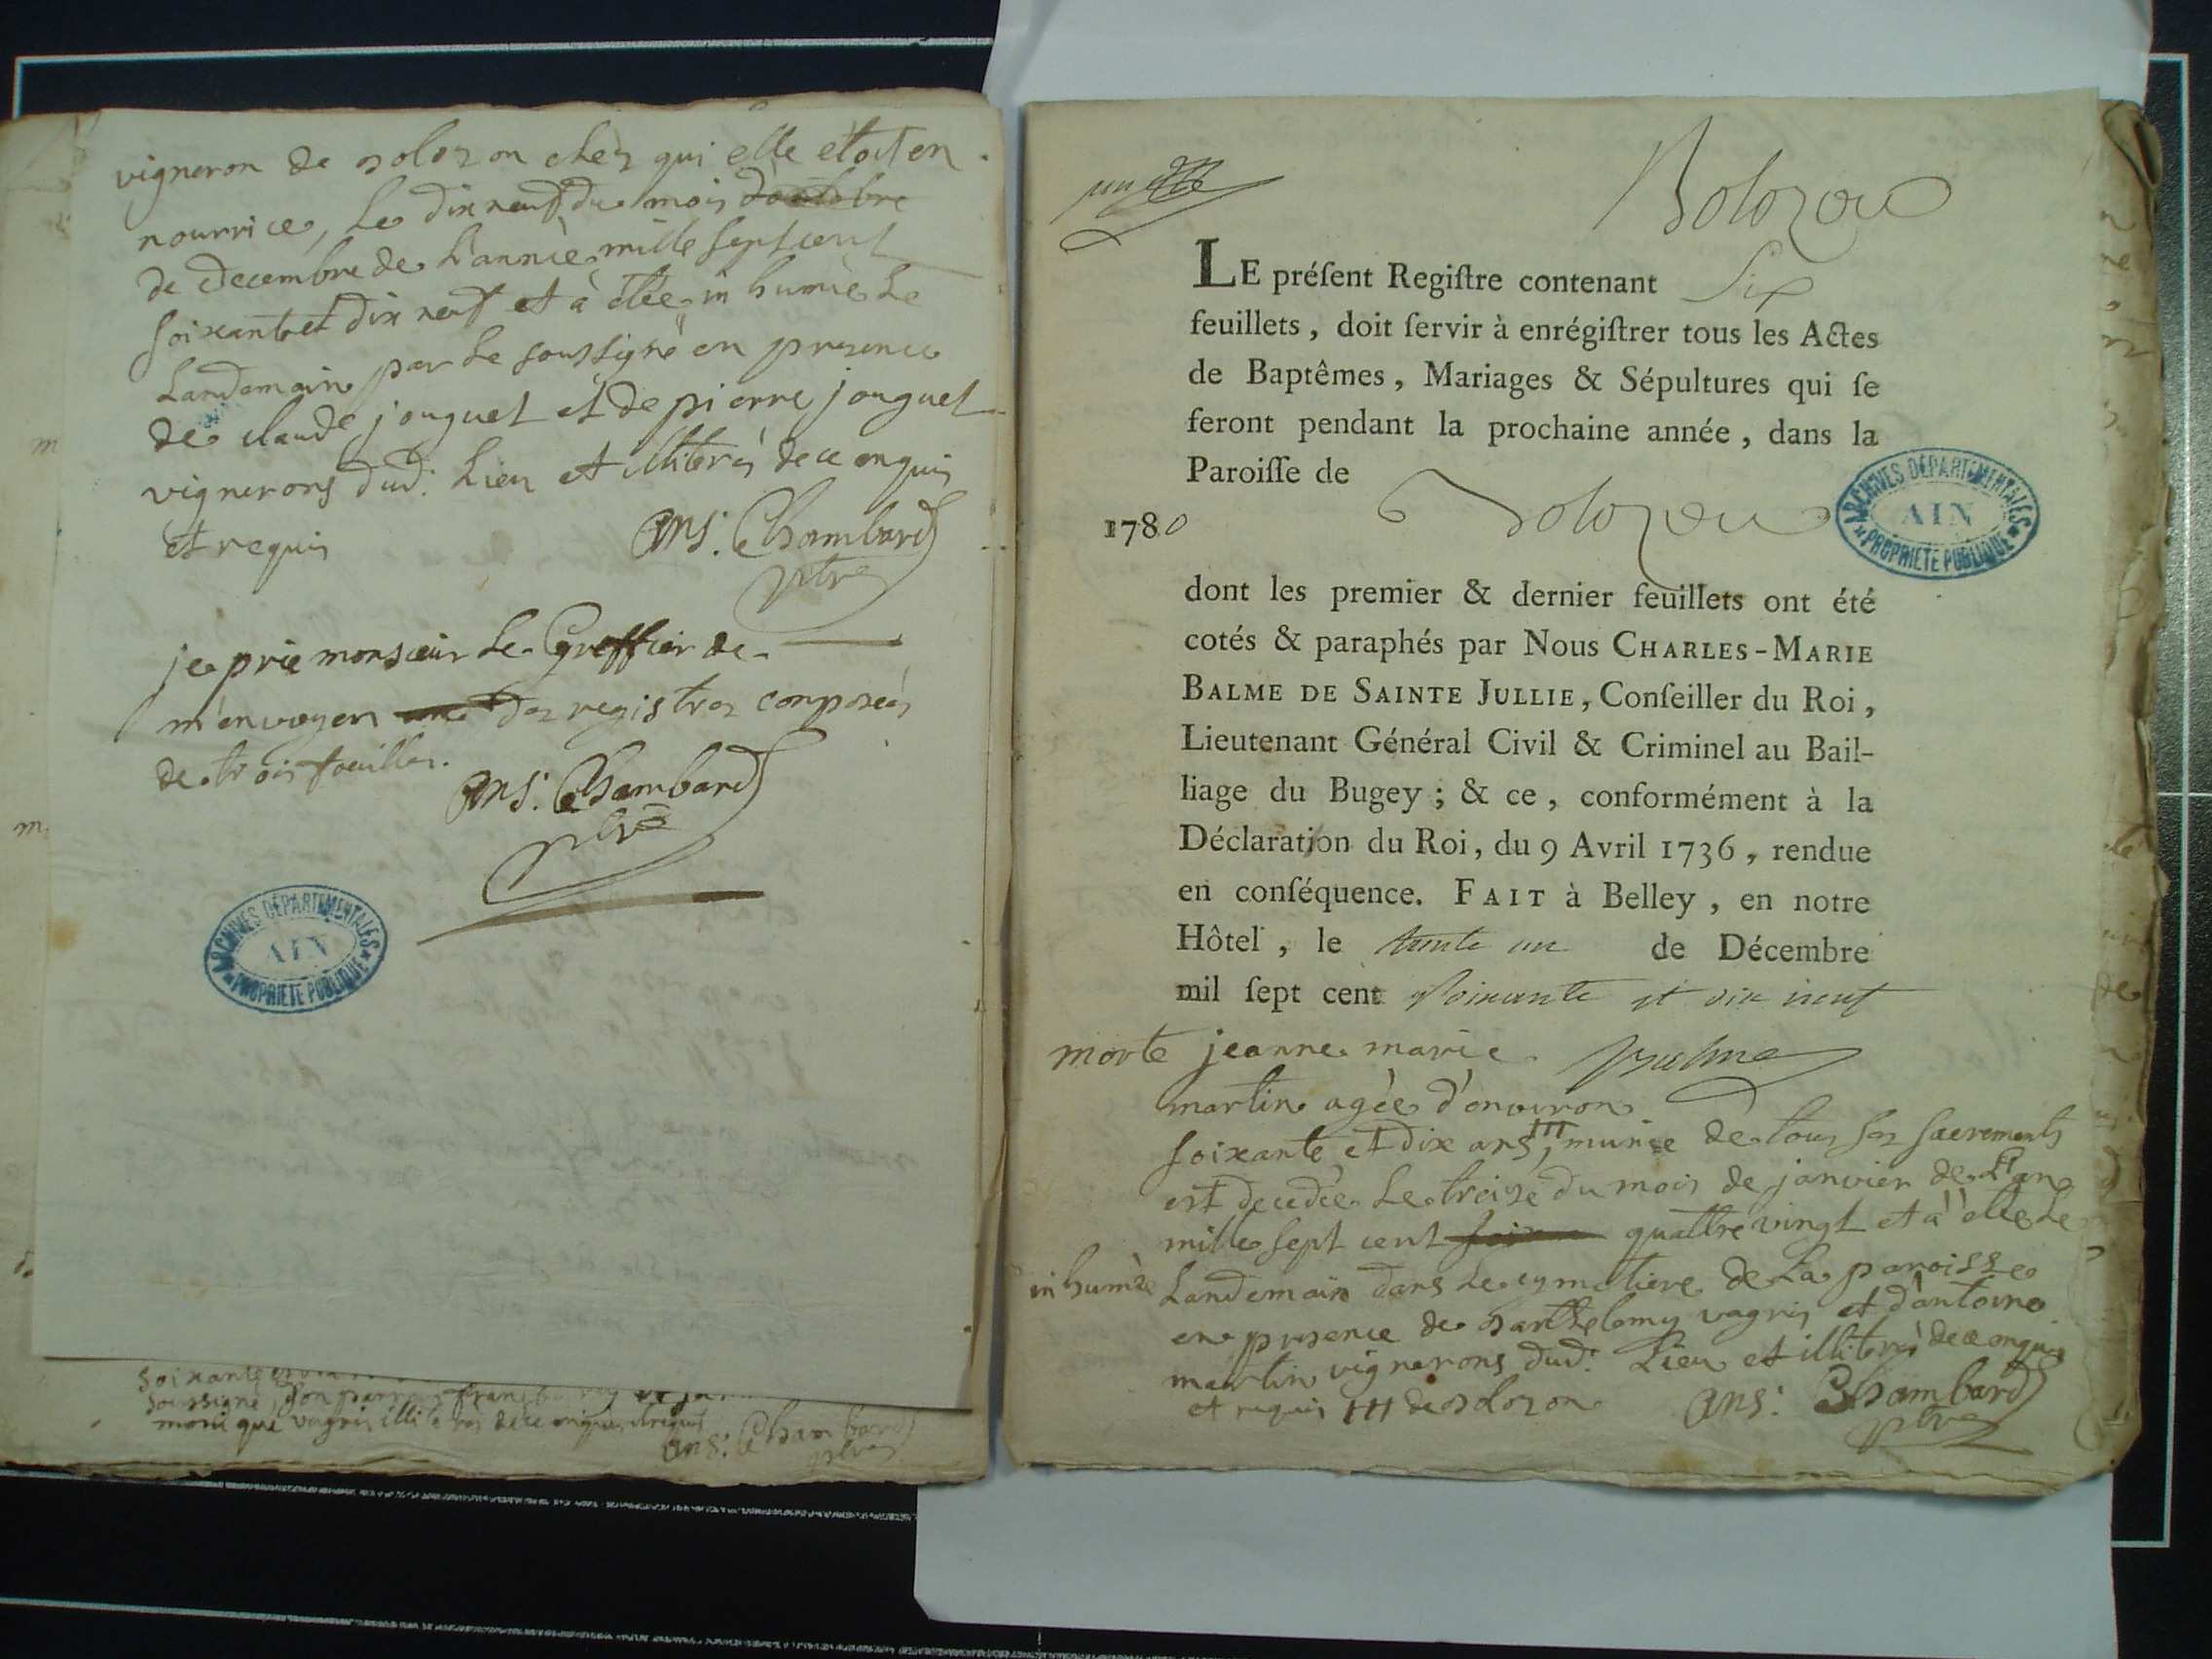 vigneron de bolozon chez qui elle etoit en
nourrice, le dix neuf du mois d'octobre
de decembre de l'année mille sept cent
soixante et dix neuf et à étée inhumée le
landemain par le soussigné en presence
de claude jouguet et de pierre jouguet
vignerons dud. lieu et illiterés de ce enquis
et requis
ans. Chambard
ptre
je prie monsieur le Greffier de
m'envoyer des registres composées
de trois feuilles.
ans. Chambard
ptre
ARCHIVES DÉPARTEMENTALES
AIN
PROPRIÉTÉ PUBLIQUE
soixante
soussigné
monique vagris illiterés de ce enquis et requis
ans. Chambard
ptre
un
Bolozon
LE préſent Regiſtre contenant Six
feuillets, doit ſervir à enrégiſtrer tous les Actes
de Baptêmes, Mariages & Sépultures qui ſe
feront pendant la prochaine année, dans la
Paroiſſe de
1780 Bolozon
ARCHIVES DÉPARTEMENTALES
AIN
PROPRIÉTÉ PUBLIQUE
dont les premier & dernier feuillets ont été
cotés & paraphés par Nous CHARLES-MARIE
BALME DE SAINTE JULLIE, Conſeiller du Roi,
Lieutenant Général Civil & Criminel au Bail-
liage du Bugey; & ce, conformément à la
Déclaration du Roi, du 9 Avril 1736, rendue
en conſéquence. FAIT à Belley, en notre
Hôtel, le trente un de Décembre
mil ſept cent soixante et dix neuf
morte jeanne marie Balme
martin agée d'environ
soixante et dix ans, munie de tous ses sacrements
est decedée le treize du mois de janvier de l'an
mille sept cent soix quattre vingt et à étée le
inhumée landemain dans le cymetiere de la paroisse
en presence de barthelemy vagris et d'antoine
martin vignerons dud. lieu et illiterés de ce enquis
et requis de bolozon ans. Chambard
ptre